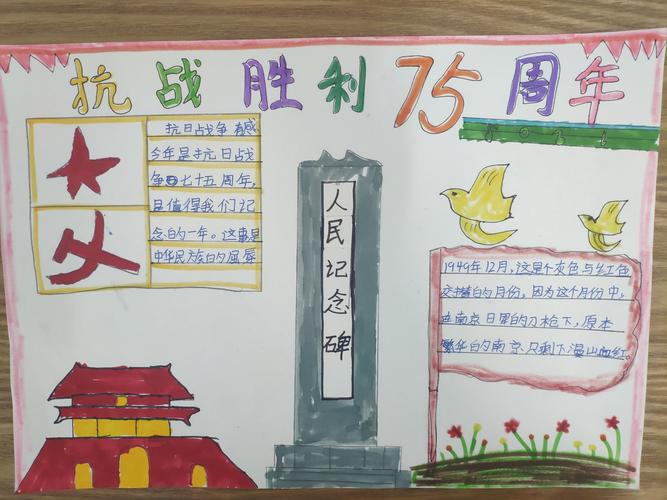 抗战胜利75周年
抗日战争有感
今年是抗日战
争七十五周年,
是值得我们记
念的一年。这事是
中华民族的屈辱
人民记念碑
1949年12月,这是个灰色与红色
交接的月份,因为这个月份中,
在南京日军的刀枪下,原本
繁华的南京只剩下漫山血红。